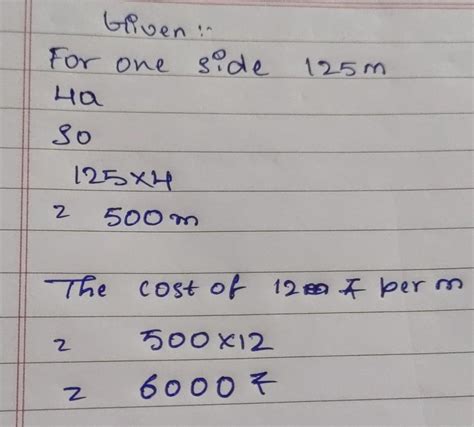 Given :-
For one side 125m
4a
So
125×4
= 500m
The cost of 12 ₹ per m
= 500×12
= 6000₹